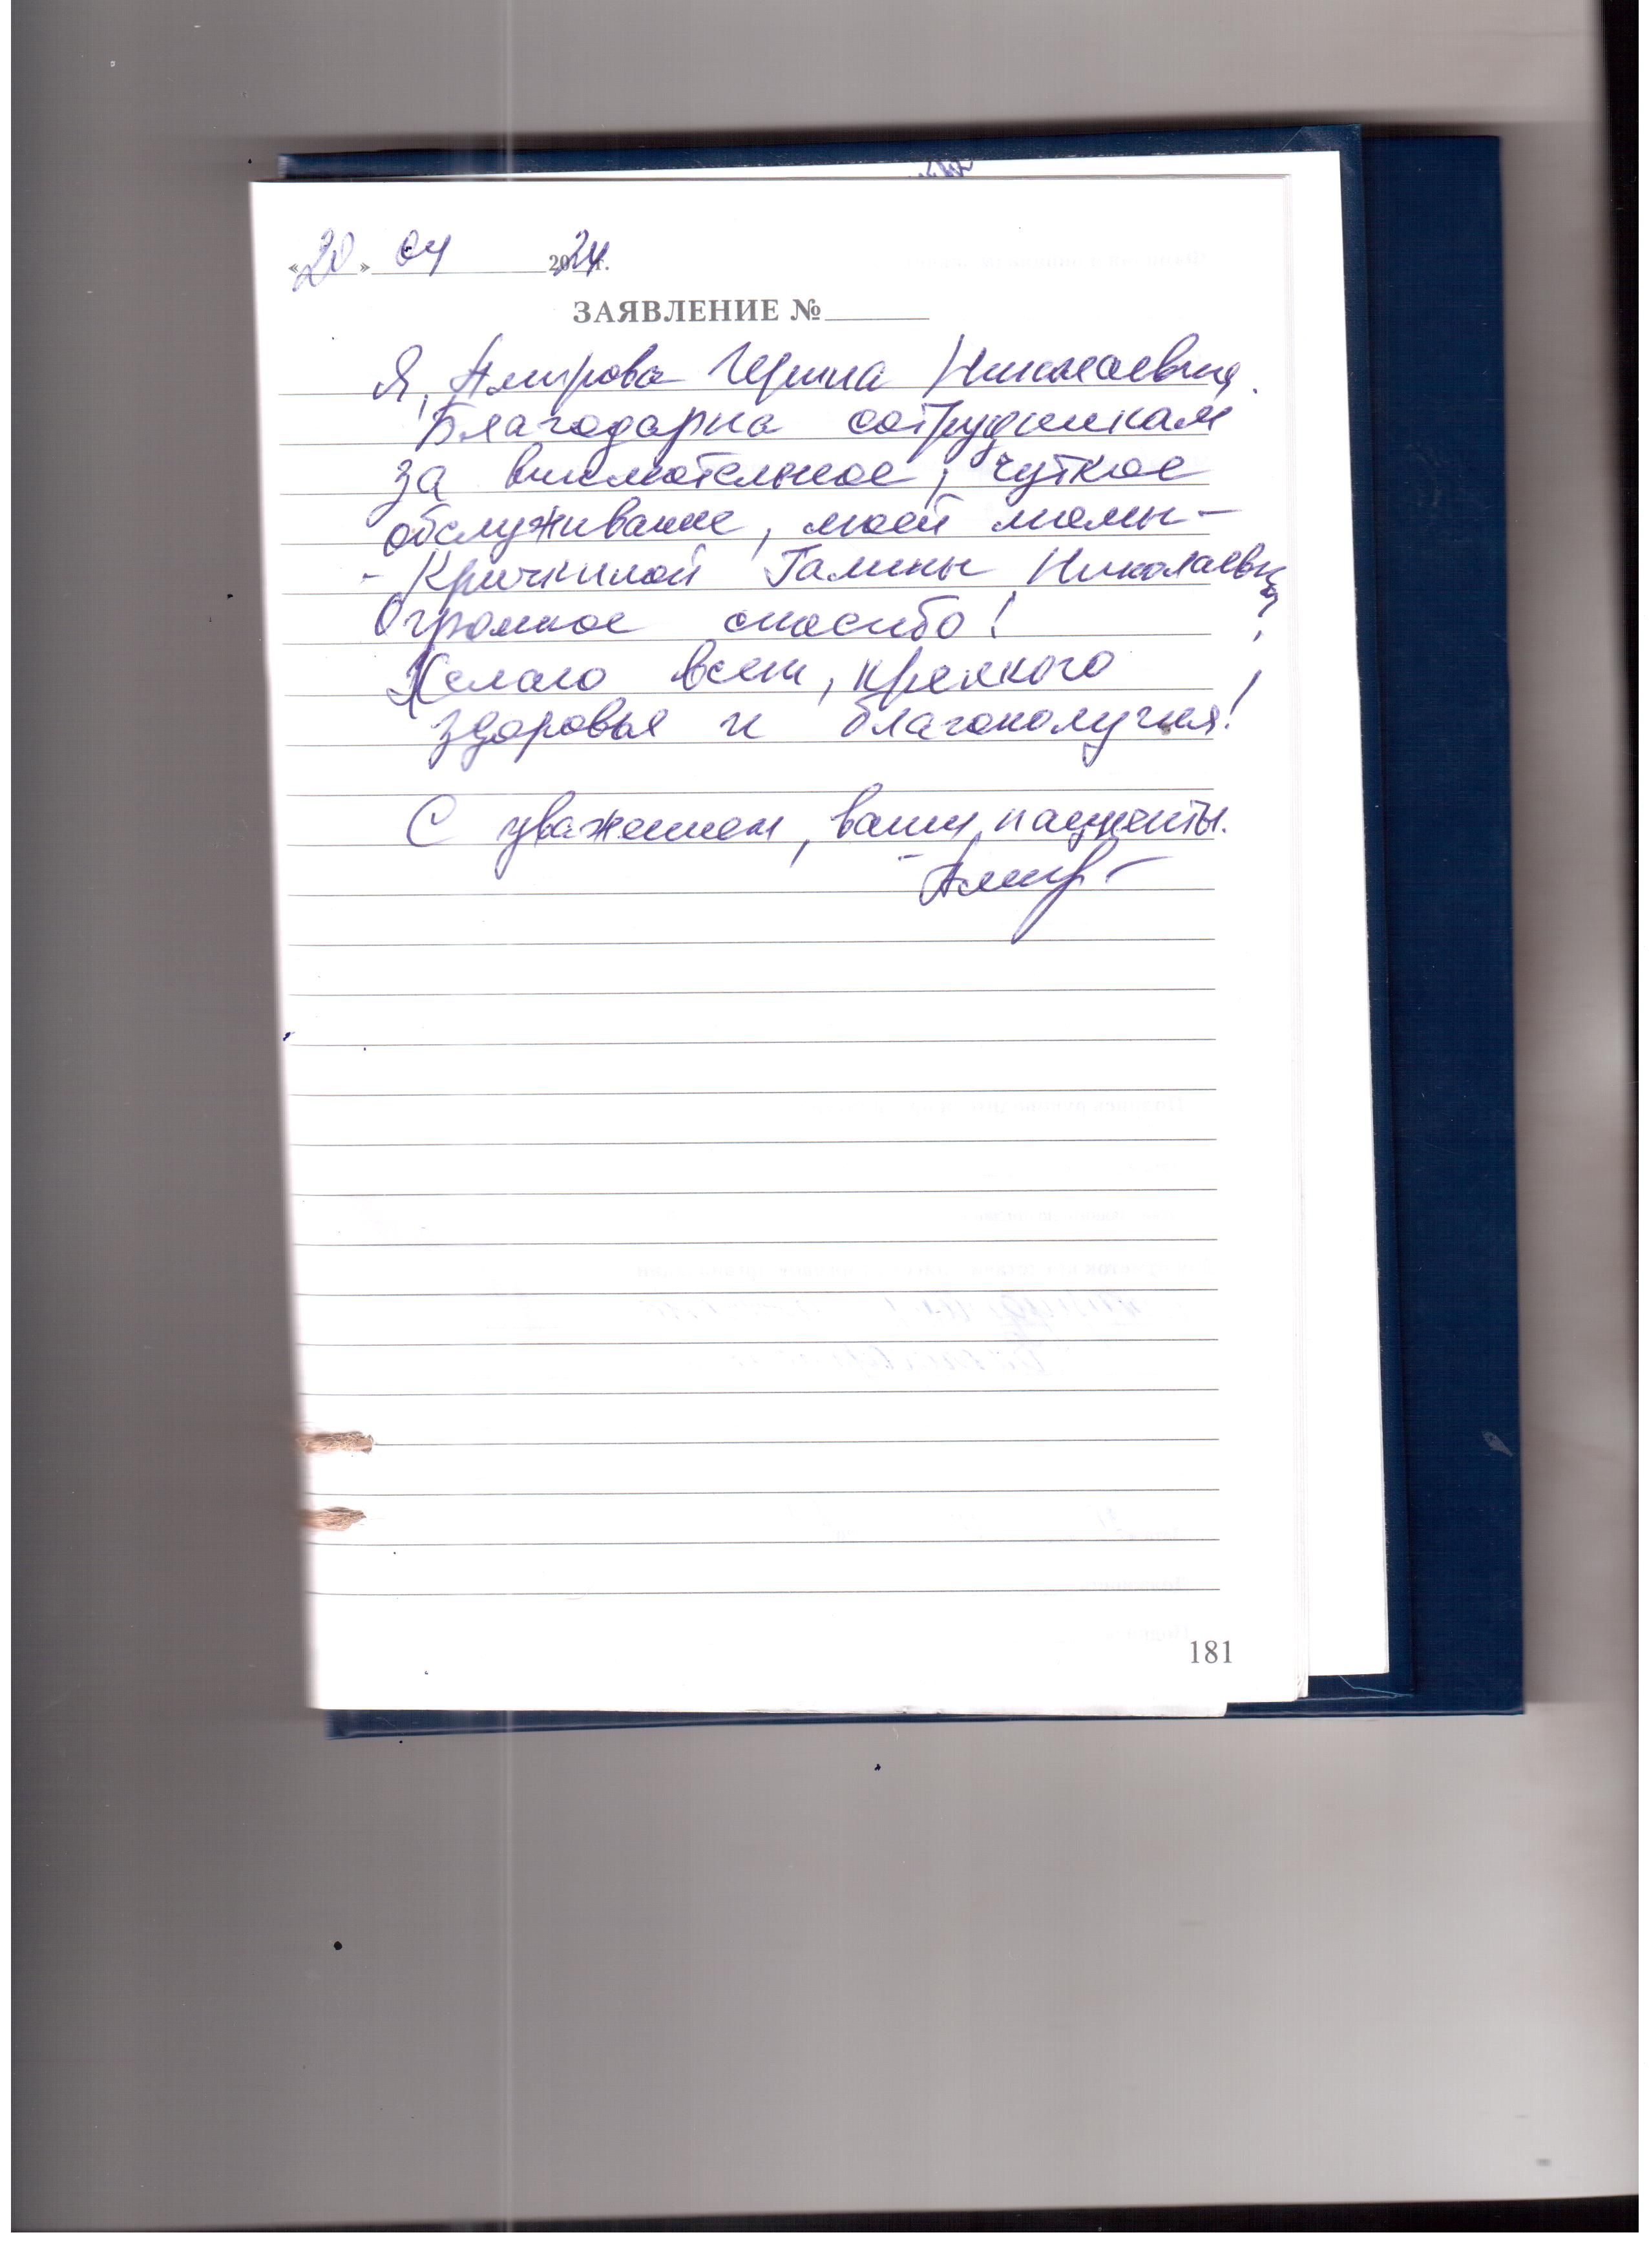 «20» 04 2024 г.
ЗАЯВЛЕНИЕ №
Я, Амирова Ирина Николаевна.
Благодарна сотрудникам
за внимательное, чуткое
обслуживание, моей мамы -
- Кричкиной Галины Николаевны
Огромное спасибо!
Желаю всем, крепкого
здоровья и благополучия!
С уважением, ваши пациенты.
- Амир -
181